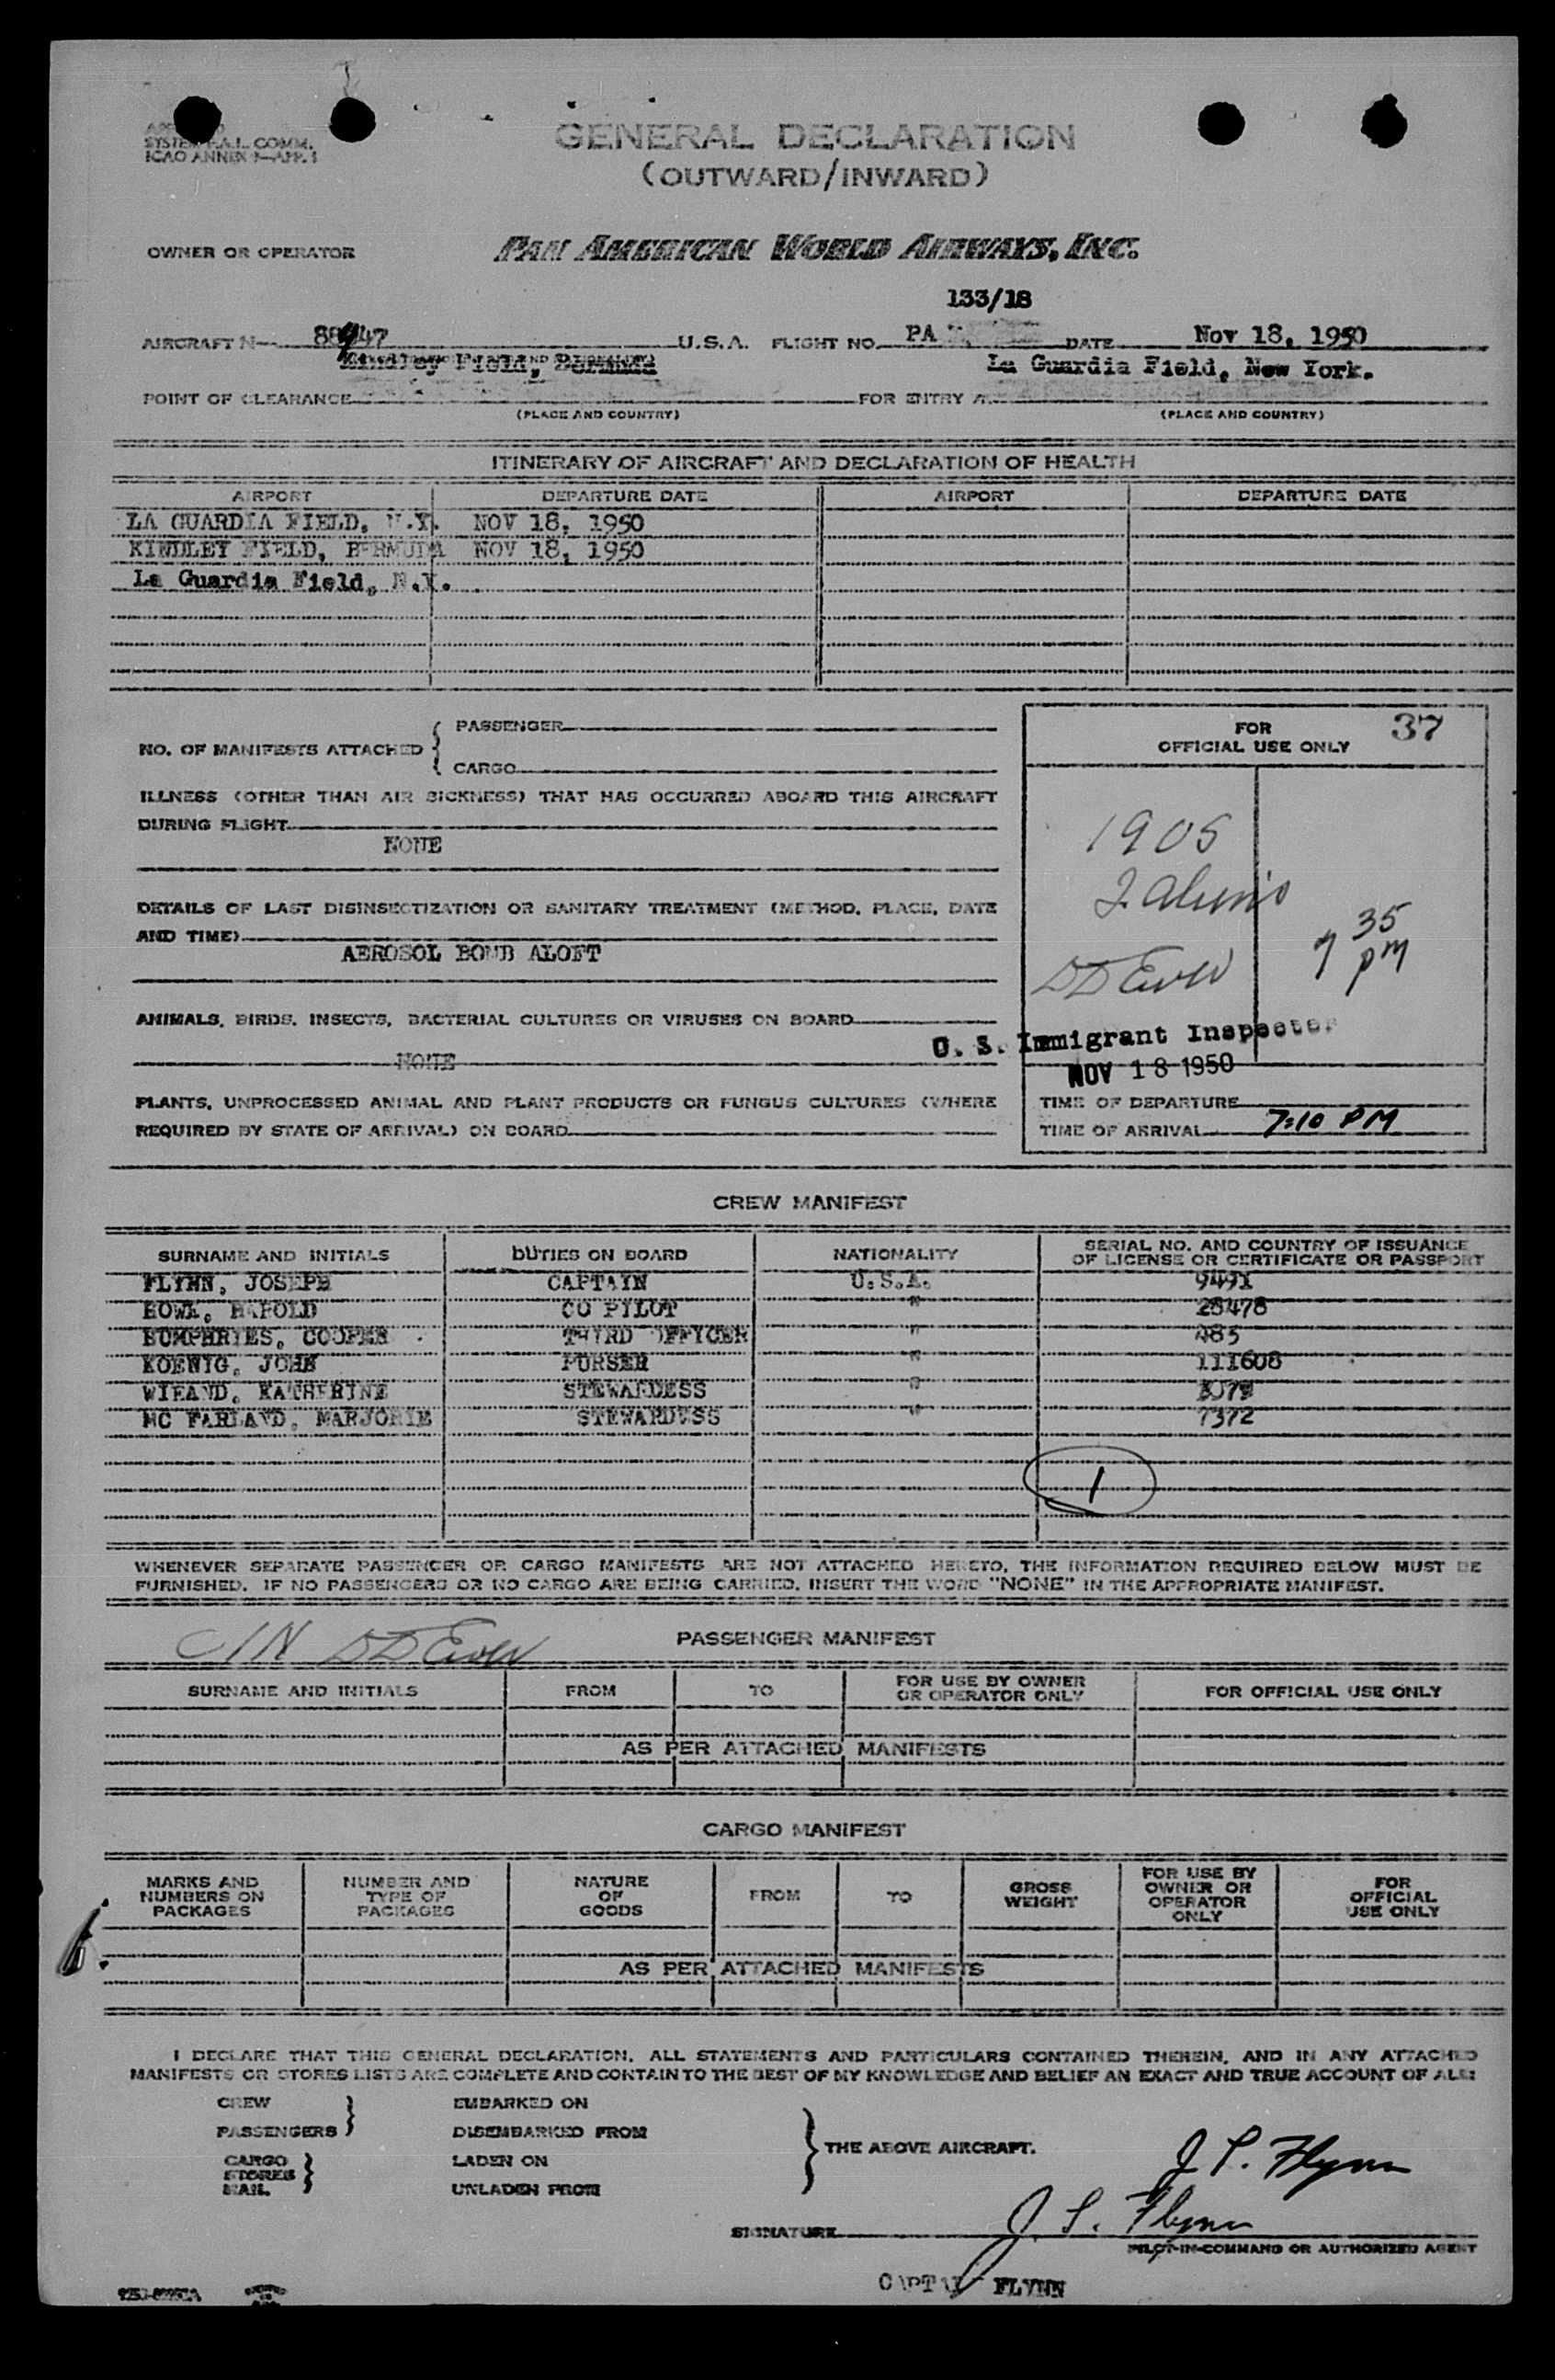 SYSTEM F.A.L. COMM.
ICAO ANNEX 9—APP. 1
GENERAL DECLARATION
(OUTWARD/INWARD)
OWNER OR OPERATOR PAN AMERICAN WORLD AIRWAYS, INC.
133/18
AIRCRAFT N— 88947 U.S.A. FLIGHT NO. PA DATE Nov 18, 1950
Kindley Field, Bermuda La Guardia Field, New York.
POINT OF CLEARANCE FOR ENTRY AT
(PLACE AND COUNTRY) (PLACE AND COUNTRY)
ITINERARY OF AIRCRAFT AND DECLARATION OF HEALTH
AIRPORT DEPARTURE DATE AIRPORT DEPARTURE DATE
LA GUARDIA FIELD, N.Y. NOV 18, 1950
KINDLEY FIELD, BERMUDA NOV 18, 1950
La Guardia Field, N.Y.
NO. OF MANIFESTS ATTACHED { PASSENGER
CARGO
FOR
OFFICIAL USE ONLY 37
ILLNESS (OTHER THAN AIR SICKNESS) THAT HAS OCCURRED ABOARD THIS AIRCRAFT
DURING FLIGHT
NONE
1905
2 aliens
DETAILS OF LAST DISINSECTIZATION OR SANITARY TREATMENT (METHOD, PLACE, DATE
AND TIME)
AEROSOL BOMB ALOFT
7 35 PM
ANIMALS, BIRDS, INSECTS, BACTERIAL CULTURES OR VIRUSES ON BOARD
NONE
U. S. Immigrant Inspector
NOV 18 1950
PLANTS, UNPROCESSED ANIMAL AND PLANT PRODUCTS OR FUNGUS CULTURES (WHERE
REQUIRED BY STATE OF ARRIVAL) ON BOARD
TIME OF DEPARTURE
TIME OF ARRIVAL 7:10 PM
CREW MANIFEST
SURNAME AND INITIALS DUTIES ON BOARD NATIONALITY SERIAL NO. AND COUNTRY OF ISSUANCE
OF LICENSE OR CERTIFICATE OR PASSPORT
FLYNN, JOSEPH CAPTAIN U.S.A. 9491
HOWK, HAROLD CO PILOT " 28478
HUMPHRIES, COOPER THIRD OFFICER " 485
KOENIG, JOHN PURSER " 111608
WIEAND, KATHERINE STEWARDESS "
MC FARLAND, MARJORIE STEWARDESS " 7372
1
WHENEVER SEPARATE PASSENGER OR CARGO MANIFESTS ARE NOT ATTACHED HERETO, THE INFORMATION REQUIRED BELOW MUST BE
FURNISHED. IF NO PASSENGERS OR NO CARGO ARE BEING CARRIED, INSERT THE WORD "NONE" IN THE APPROPRIATE MANIFEST.
PASSENGER MANIFEST
SURNAME AND INITIALS FROM TO FOR USE BY OWNER
OR OPERATOR ONLY FOR OFFICIAL USE ONLY
AS PER ATTACHED MANIFESTS
CARGO MANIFEST
MARKS AND
NUMBERS ON
PACKAGES
NUMBER AND
TYPE OF
PACKAGES
NATURE
OF
GOODS
FROM TO GROSS
WEIGHT
FOR USE BY
OWNER OR
OPERATOR
ONLY
FOR
OFFICIAL
USE ONLY
AS PER ATTACHED MANIFESTS
I DECLARE THAT THIS GENERAL DECLARATION, ALL STATEMENTS AND PARTICULARS CONTAINED THEREIN, AND IN ANY ATTACHED
MANIFESTS OR STORES LISTS ARE COMPLETE AND CONTAIN TO THE BEST OF MY KNOWLEDGE AND BELIEF AN EXACT AND TRUE ACCOUNT OF ALL:
CREW EMBARKED ON
PASSENGERS DISEMBARKED FROM
CARGO
STORES
MAIL
LADEN ON
UNLADEN FROM
THE ABOVE AIRCRAFT.
J. P. Flynn
SIGNATURE J. P. Flynn
PILOT-IN-COMMAND OR AUTHORIZED AGENT
CAPTAIN FLYNN